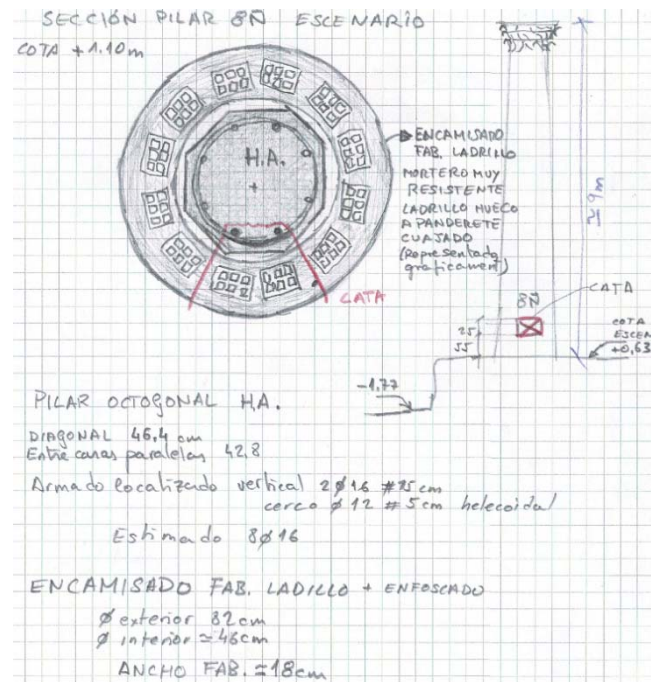 SECCIÓN PILAR 8Ñ ESCENARIO
COTA +1.10m
H.A.
ENCAMISADO
FAB. LADRILLO
MORTERO MUY
RESISTENTE
LADRILLO HUECO
A PANDERETE
CUAJADO
(representado
graficament)
CATA
8Ñ
CATA
25
55
COTA
ESCEN
+0,63
-1,77
PILAR OCTOGONAL H.A.
DIAGONAL 46,4 cm
Entre caras paralelas 42,8
Armado localizado vertical 2ø16 #15cm
cerco ø12 #5cm helecoidal
Estimado 8ø16
ENCAMISADO FAB. LADILLO + ENFOSCADO
ø exterior 82cm
ø interior ≃46cm
ANCHO FAB. ≃18cm